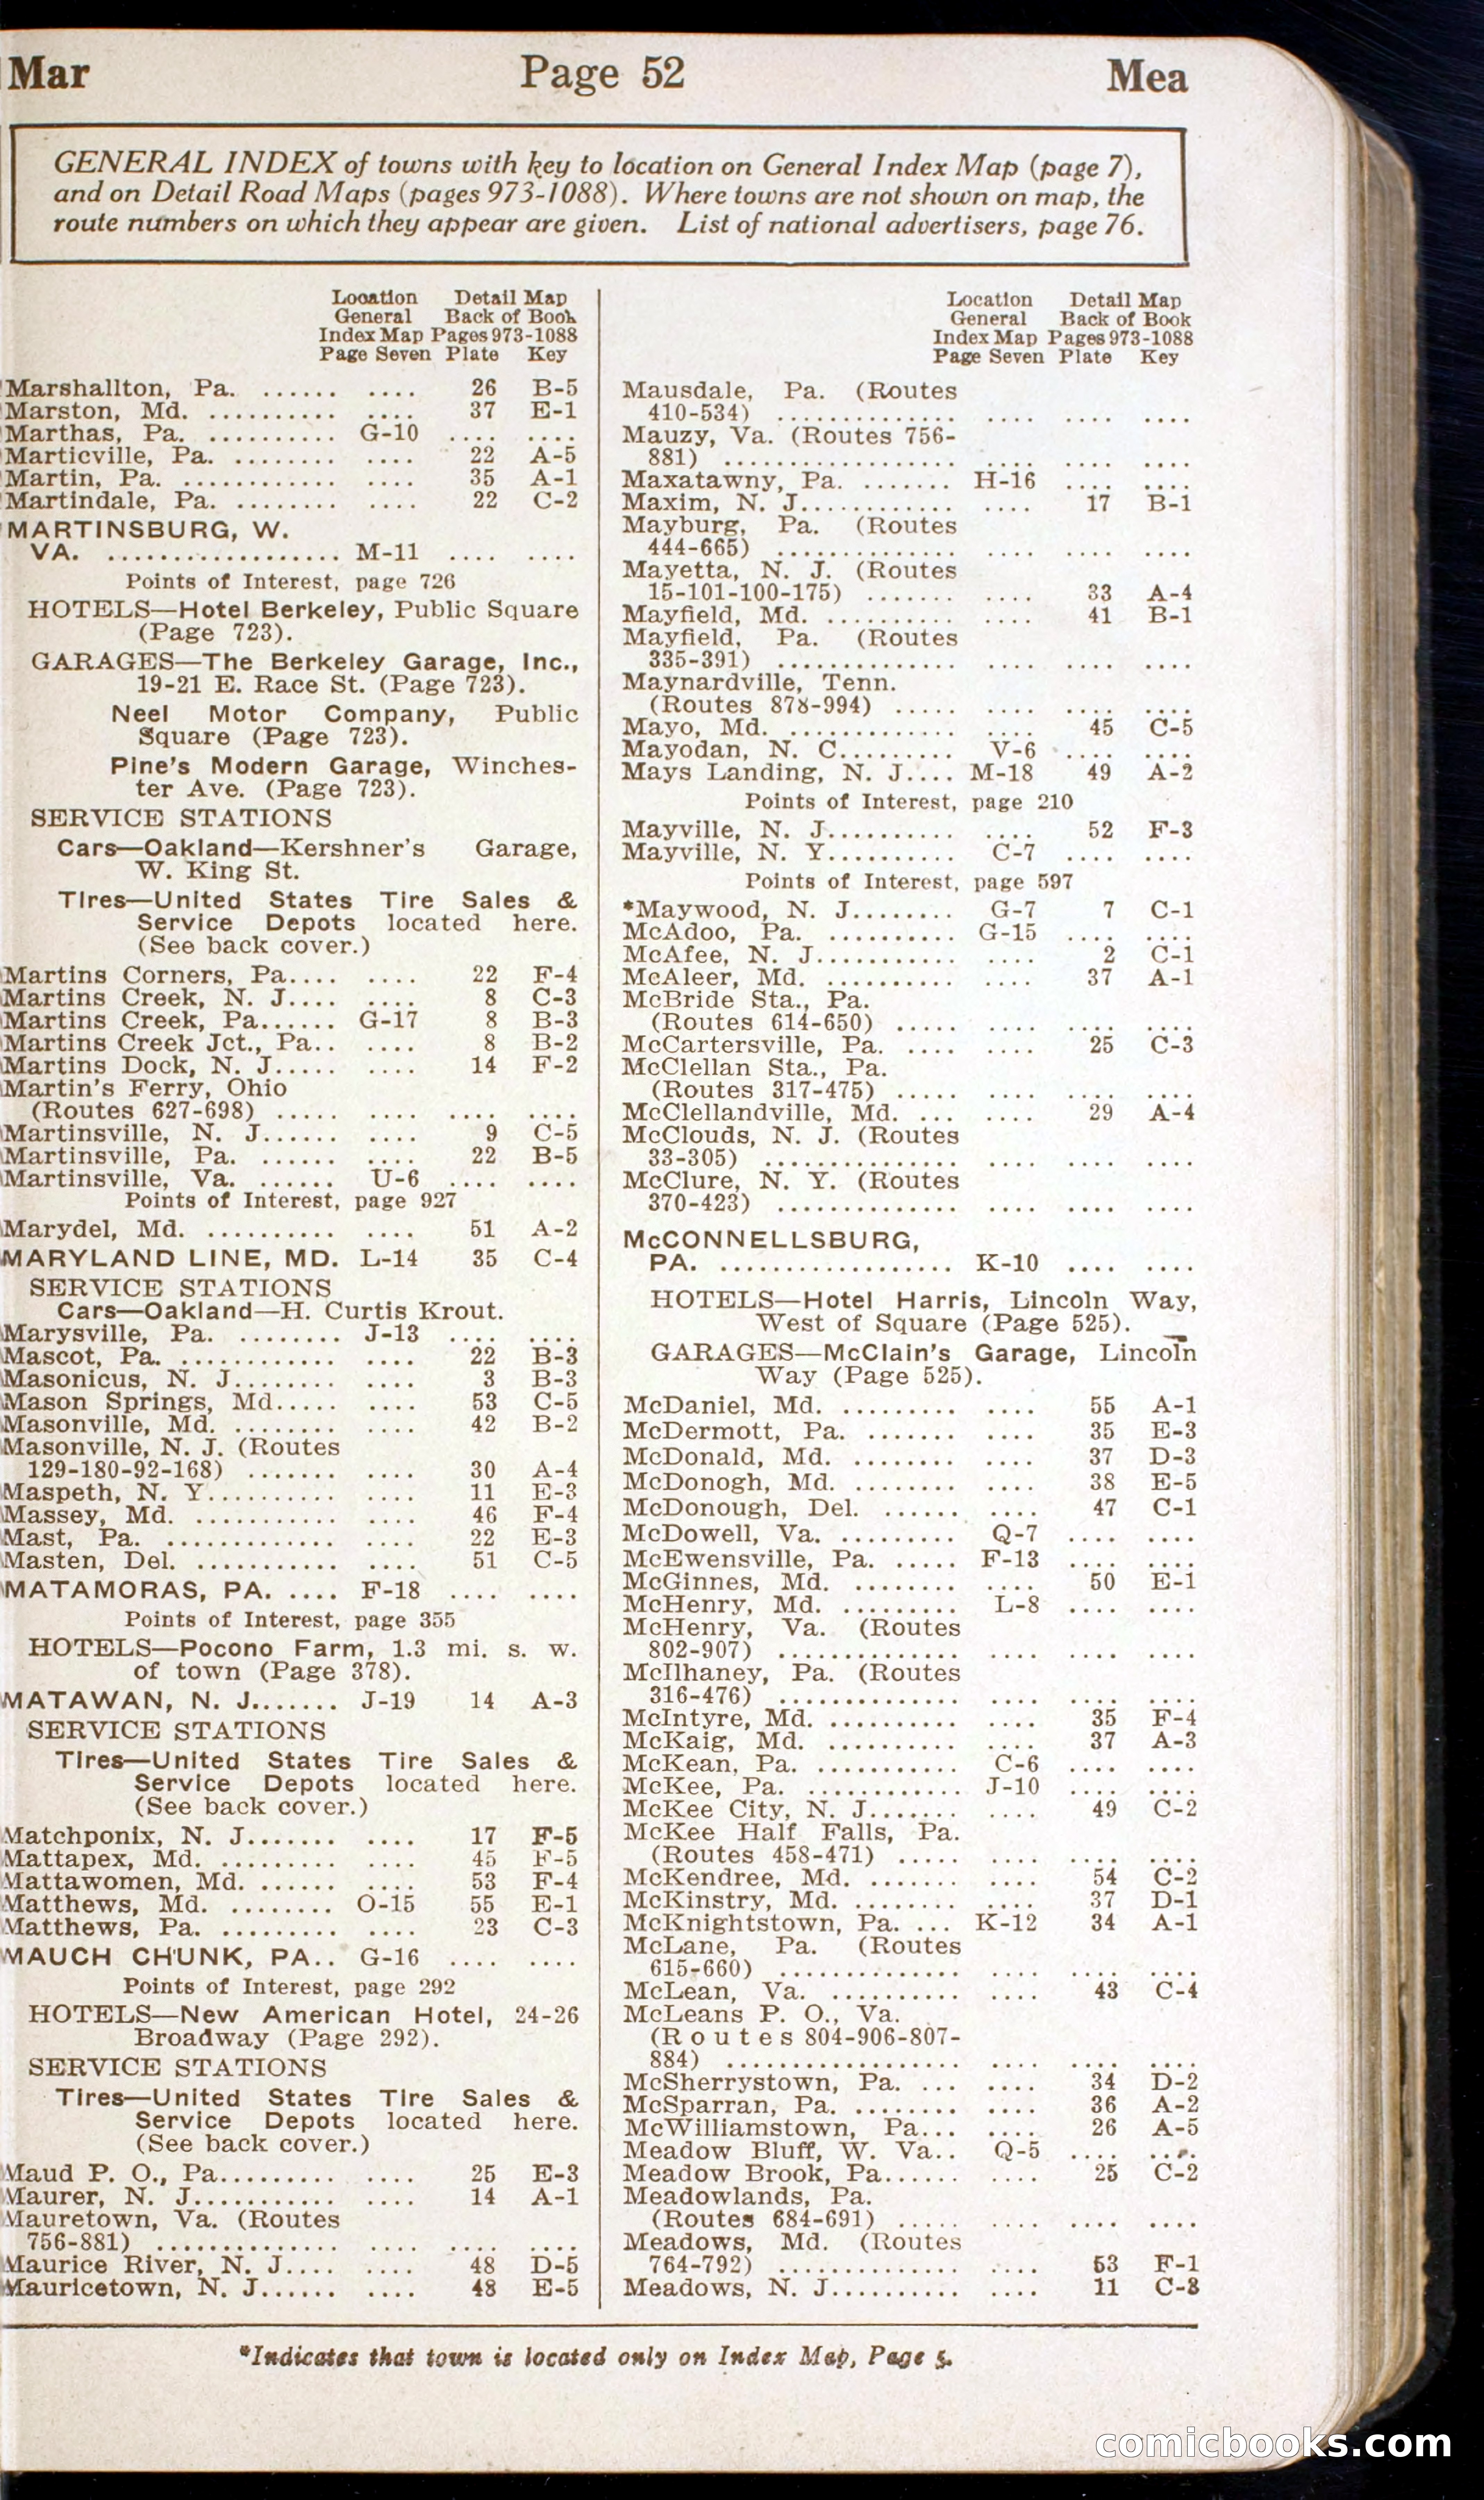 Mar Page 52 Mea
GENERAL INDEX of towns with key to location on General Index Map (page 7),
and on Detail Road Maps (pages 973-1088). Where towns are not shown on map, the
route numbers on which they appear are given. List of national advertisers, page 76.
Location Detail Map
General Back of Book
Index Map Pages 973-1088
Page Seven Plate Key
Marshallton, Pa. ...... .... 26 B-5
Marston, Md. .......... .... 37 E-1
Marthas, Pa. .......... G-10 .... ....
Marticville, Pa. ........ .... 22 A-5
Martin, Pa. ............ .... 35 A-1
Martindale, Pa. ........ .... 22 C-2
MARTINSBURG, W.
VA. .................. M-11 .... ....
Points of Interest, page 726
HOTELS—Hotel Berkeley, Public Square
(Page 723).
GARAGES—The Berkeley Garage, Inc.,
19-21 E. Race St. (Page 723).
Neel Motor Company, Public
Square (Page 723).
Pine's Modern Garage, Winches-
ter Ave. (Page 723).
SERVICE STATIONS
Cars—Oakland—Kershner's Garage,
W. King St.
Tires—United States Tire Sales &
Service Depots located here.
(See back cover.)
Martins Corners, Pa.... .... 22 F-4
Martins Creek, N. J.... .... 8 C-3
Martins Creek, Pa...... G-17 8 B-3
Martins Creek Jct., Pa.. .... 8 B-2
Martins Dock, N. J..... .... 14 F-2
Martin's Ferry, Ohio
(Routes 627-698) ..... .... .... ....
Martinsville, N. J...... .... 9 C-5
Martinsville, Pa. ...... .... 22 B-5
Martinsville, Va. ...... U-6 .... ....
Points of Interest, page 927
Marydel, Md. .......... .... 51 A-2
MARYLAND LINE, MD. L-14 35 C-4
SERVICE STATIONS
Cars—Oakland—H. Curtis Krout.
Marysville, Pa. ........ J-13 .... ....
Mascot, Pa. ............ .... 22 B-3
Masonicus, N. J........ .... 3 B-3
Mason Springs, Md..... .... 53 C-5
Masonville, Md. ........ .... 42 B-2
Masonville, N. J. (Routes
129-180-92-168) ....... .... 30 A-4
Maspeth, N. Y.......... .... 11 E-3
Massey, Md. ........... .... 46 F-4
Mast, Pa. ............. .... 22 E-3
Masten, Del. ........... .... 51 C-5
MATAMORAS, PA. .... F-18 .... ....
Points of Interest, page 355
HOTELS—Pocono Farm, 1.3 mi. s. w.
of town (Page 378).
MATAWAN, N. J....... J-19 14 A-3
SERVICE STATIONS
Tires—United States Tire Sales &
Service Depots located here.
(See back cover.)
Matchponix, N. J....... .... 17 F-5
Mattapex, Md. ......... .... 45 F-5
Mattawomen, Md. ...... .... 53 F-4
Matthews, Md. ........ O-15 55 E-1
Matthews, Pa. ......... .... 23 C-3
MAUCH CHUNK, PA.. G-16 .... ....
Points of Interest, page 292
HOTELS—New American Hotel, 24-26
Broadway (Page 292).
SERVICE STATIONS
Tires—United States Tire Sales &
Service Depots located here.
(See back cover.)
Maud P. O., Pa......... .... 25 E-3
Maurer, N. J........... .... 14 A-1
Mauretown, Va. (Routes
756-881) .............. .... .... ....
Maurice River, N. J.... .... 48 D-5
Mauricetown, N. J...... .... 48 E-5
Location Detail Map
General Back of Book
Index Map Pages 973-1088
Page Seven Plate Key
Mausdale, Pa. (Routes
410-534) .............. .... .... ....
Mauzy, Va. (Routes 756-
881) .................. .... .... ....
Maxatawny, Pa. ....... H-16 .... ....
Maxim, N. J............ .... 17 B-1
Mayburg, Pa. (Routes
444-665) .............. .... .... ....
Mayetta, N. J. (Routes
15-101-100-175) ....... .... 33 A-4
Mayfield, Md. .......... .... 41 B-1
Mayfield, Pa. (Routes
335-391) .............. .... .... ....
Maynardville, Tenn.
(Routes 878-994) ..... .... .... ....
Mayo, Md. ............. .... 45 C-5
Mayodan, N. C......... V-6 .... ....
Mays Landing, N. J.... M-18 49 A-2
Points of Interest, page 210
Mayville, N. J.......... .... 52 F-3
Mayville, N. Y.......... C-7 .... ....
Points of Interest, page 597
*Maywood, N. J........ G-7 7 C-1
McAdoo, Pa. .......... G-15 .... ....
McAfee, N. J........... .... 2 C-1
McAleer, Md. .......... .... 37 A-1
McBride Sta., Pa.
(Routes 614-650) ..... .... .... ....
McCartersville, Pa. .... .... 25 C-3
McClellan Sta., Pa.
(Routes 317-475) ..... .... .... ....
McClellandville, Md. ... .... 29 A-4
McClouds, N. J. (Routes
33-305) ............... .... .... ....
McClure, N. Y. (Routes
370-423) .............. .... .... ....
McCONNELLSBURG,
PA. .................. K-10 .... ....
HOTELS—Hotel Harris, Lincoln Way,
West of Square (Page 525).
GARAGES—McClain's Garage, Lincoln
Way (Page 525).
McDaniel, Md. ......... .... 55 A-1
McDermott, Pa. ....... .... 35 E-3
McDonald, Md. ........ .... 37 D-3
McDonogh, Md. ........ .... 38 E-5
McDonough, Del. ...... .... 47 C-1
McDowell, Va. ......... Q-7 .... ....
McEwensville, Pa. ..... F-13 .... ....
McGinnes, Md. ........ .... 50 E-1
McHenry, Md. ......... L-8 .... ....
McHenry, Va. (Routes
802-907) .............. .... .... ....
McIlhaney, Pa. (Routes
316-476) .............. .... .... ....
McIntyre, Md. .......... .... 35 F-4
McKaig, Md. .......... .... 37 A-3
McKean, Pa. ........... C-6 .... ....
McKee, Pa. ............ J-10 .... ....
McKee City, N. J....... .... 49 C-2
McKee Half Falls, Pa.
(Routes 458-471) ..... .... .... ....
McKendree, Md. ....... .... 54 C-2
McKinstry, Md. ........ .... 37 D-1
McKnightstown, Pa. ... K-12 34 A-1
McLane, Pa. (Routes
615-660) .............. .... .... ....
McLean, Va. .......... .... 43 C-4
McLeans P. O., Va.
(Routes 804-906-807-
884) .................. .... .... ....
McSherrystown, Pa. ... .... 34 D-2
McSparran, Pa. ........ .... 36 A-2
McWilliamstown, Pa... .... 26 A-5
Meadow Bluff, W. Va.. Q-5 .... ....
Meadow Brook, Pa...... .... 25 C-2
Meadowlands, Pa.
(Routes 684-691) ..... .... .... ....
Meadows, Md. (Routes
764-792) .............. .... 53 F-1
Meadows, N. J.......... .... 11 C-3
*Indicates that town is located only on Index Map, Page 5.
comicbooks.com